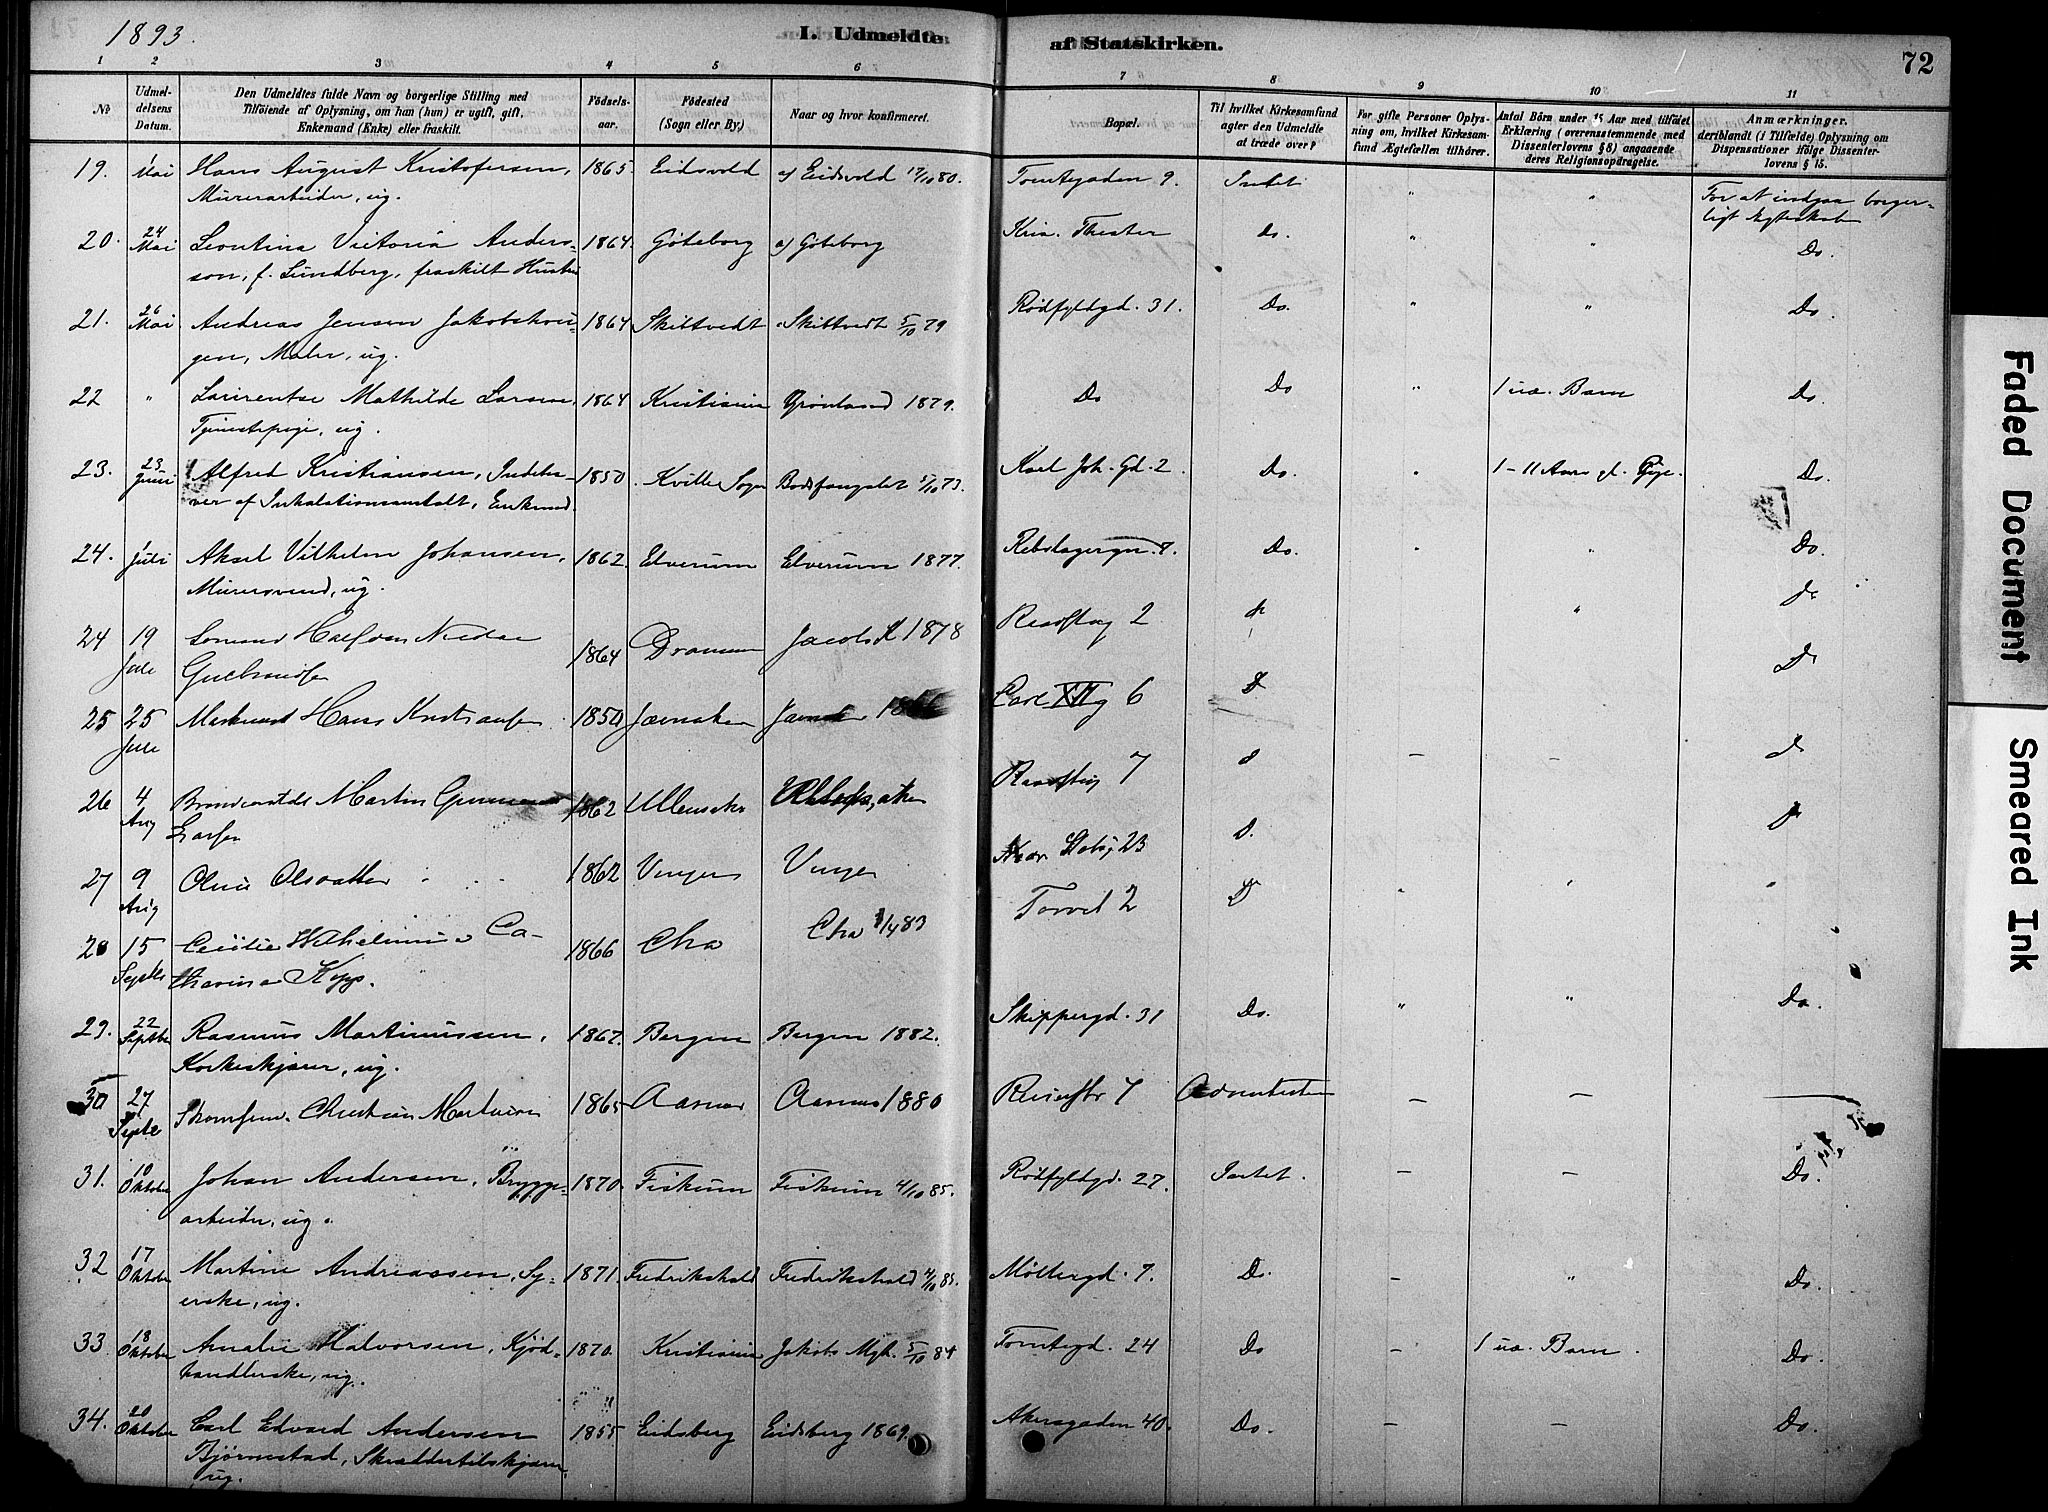 1893.
I. Udmeldte
af Statskirken.
72
1 2 3 4 5 6 7 8 9 10 11
No
Udmeldelsens Datum.
Den Udmeldtes fulde Navn og borgerlige Stilling med
Tilföiende af Oplysning, om han (hun) er ugift, gift,
Enkemand (Enke) eller fraskilt.
Födselsaar.
Födested
(Sogn eller By.)
Naar og hvor konfirmeret.
Bopæl.
Til hvilket Kirkesamfund
agter den Udmeldte
at træde over?
For gifte Personer Oplysning
om, hvilket Kirkesamfund
Ægtefællen tilhörer.
Antal Börn under 15 Aar med tilföiet
Erklæring (overensstemmende med
Dissenterlovens § 8) angaaende
deres Religionsopdragelse.
Anmærkninger,
deriblandt (i Tilfælde) Oplysning om
Dispensationer ifölge Dissenterlovens § 15.
19. 1 Mai Hans August Kristofersen, 1865. Eidsvold Eidsvold 17/10 80. Tomtegaden 9. Intet " " For at indgaa borger-
Murerarbeider, ug. ligt Ægteskab
20. 24 Mai Leontina Victoria Anders- 1864. Göteborg Göteborg Kria. Theater do. " " Do.
son, f. Lundberg, fraskilt Hustru
21. 26 Mai Andreas Jensen Jakobshau- 1864 Skiltvedt Skiltvedt 5/10 79 Rödfyldgd. 31. Do. " " Do.
gen, Maler, ug.
22 " Laurentse Mathilde Larsen, 1864 Kristiania Grønland 1879. Do Do " 1 uæ. Barn Do.
Tjenestepige, ug.
23. 23 Juni Alfred Kristiansen, Indeha- 1850. Kville Sogn Bodsfængslet 5/10 73. Karl Joh. Gd. 2. Do. " 1 - 11 Aars gl. Pige. Do.
ver af Inhalationsanstalt, Enkemand.
24. 1 Juli Aksel Vilhelm Johansen, 1862. Elverum Elverum 1877. Rebslagergn. 8. Do. " " Do.
Murersvend, ug.
24 19 Juli Halfdan 1864 Drammen Jacobs K 1878 2 "
25 25 Juli Hans Kristiansen 1850 Jevnaker Carl XII g 6
26 4 Aug Martin 1862 Ullensaker 7
Larsen
27 9 Aug Oline Olsdatter 1862 Vinger Vinger 23
28 15 Septbr Cecilie Wilhelmine Ca- 1866 Chra Chra 1/4 83 Torvet 2
tharina Kopp.
29. 22 Septbr Rasmus Martinussen, 1867. Bergen Bergen 1882. Skippergd. 31 Do. " " Do.
Korkeskjærer, ug.
30 27 Septbr Christian 1865 Aasnes Aasnes 1880 7 Adventisten
31. 10 Oktober Johan Andersen, Brygge- 1870. Fiskum Fiskum 4/10 85. Rödfyldgd. 27. Intet. Do.
arbeider, ug.
32 17 Oktober Martine Andreassen, Sy- 1871. Fredrikshald Fredrikshald 4/10 85. Möllergd. 7. Do. " Do.
erske, ug.
33. 18 Oktober Amalie Halvorsen, Kjød- 1870. Kristiania Jakobs Mgh. 5/10 84 Tomtegd. 24 Do 1 uæ. Barn. Do.
handlerske, ug.
34. 20 Oktober Carl Edvard Andersen 1855 Eidsberg Eidsberg 1869. Akersgaden 40. Do. Do.
Bjørnestad, Skræddertilskjærer,
ug.
Faded Document
Smeared Ink